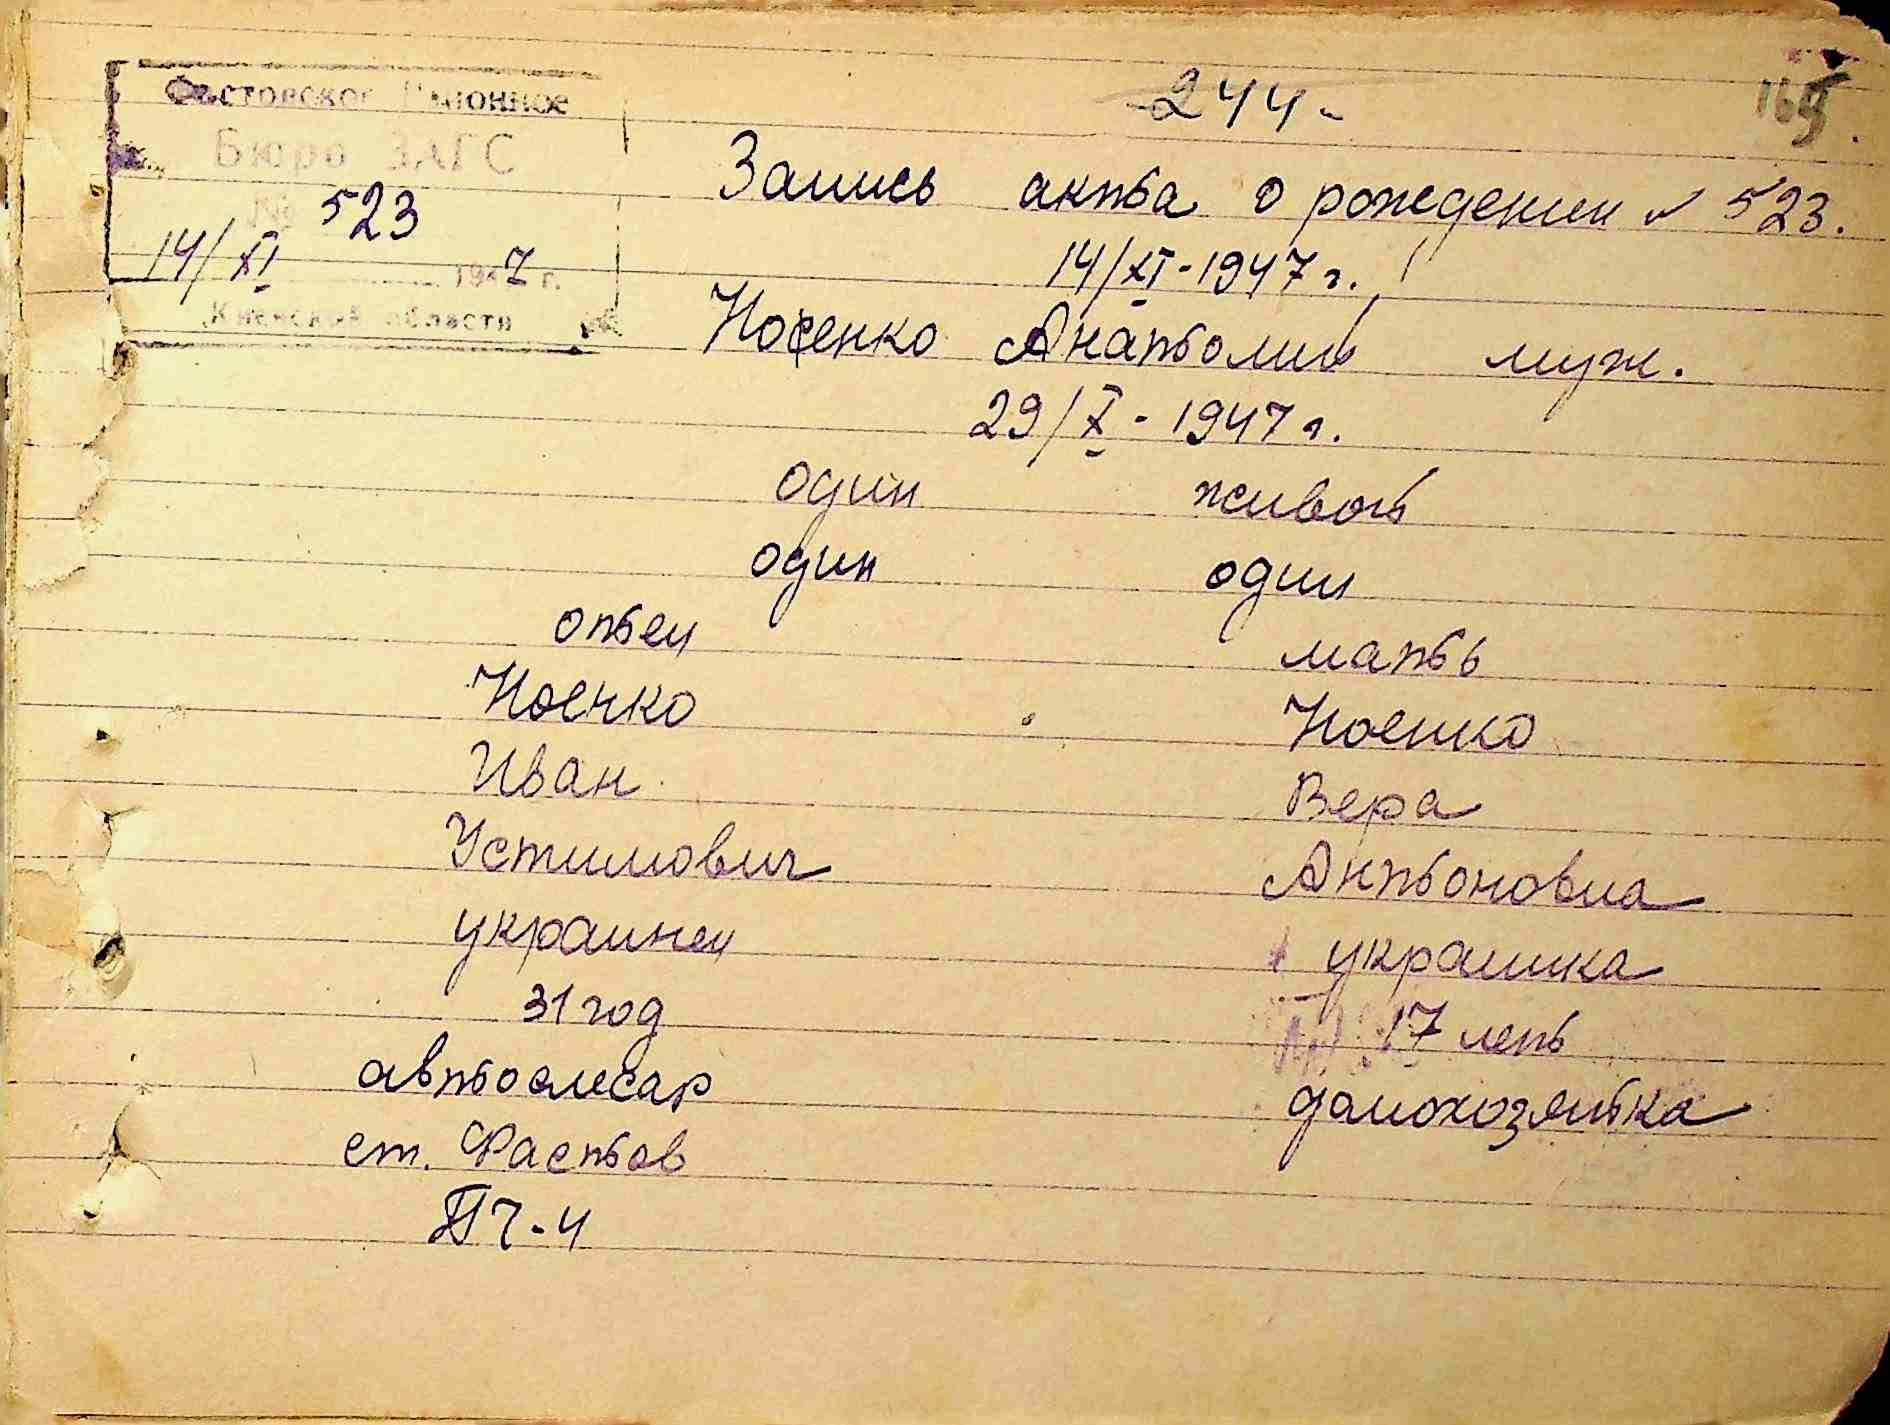 244-
Фастовское Районное
Бюро ЗАГС
№ 523
14/XI 1947 г.
Киевской области
Запись акта о рождении № 523.
14/XI-1947 г.
Носенко Анатолий муж.
29/X-1947 г.
один живой
один один
отец мать
Носенко Носенко
Иван Вера
Устимович Антоновна
украинец украинка
31 год 17 лет
автослесар домохозяйка
ст. Фастов
ПЧ-4